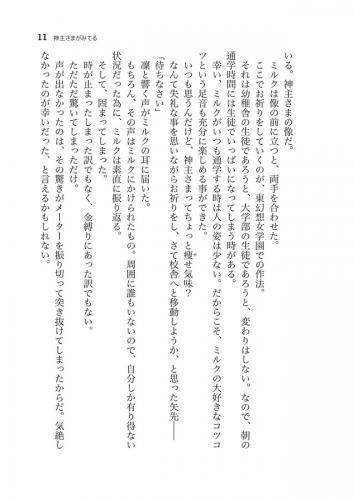 11 神主さまがみてる
いる。神主さまの像だ。
ミルクは像の前に立つと、両手を合わせた。
ここでお祈りをしていくのが、東幻想女学園での作法。
それは幼稚舎の生徒であろうと、大学部の生徒であろうと、変わりはしない。なので、朝の
通学時間には生徒でいっぱいになってしまう時がある。
幸い、ミルクがいつも通学する時は人の姿は少ない。だからこそ、ミルクの大好きなコツコ
ツという足音も充分に楽しめる事ができた。
いつも思うんだけど、神主さまってちょっと痩せ気味?
なんて失礼な事を思いながらお祈りをし、さて校舎へと移動しようか、と思った矢先――
「待ちなさい」
凜と響く声がミルクの耳に届いた。
もちろん、その声はミルクにかけられたもの。周囲に誰もいないので、自分しか有り得ない
状況だった為に、ミルクは素直に振り返る。
そして、固まってしまった。
時が止まってしまった訳でもなく、金縛りにあった訳でもない。
ただただ驚いてしまっただけ。
声が出なかったのは、その驚きがメーターを振り切って突き抜けてしまったからだ。気絶し
なかったのが幸いだった、と言えるかもしれない。